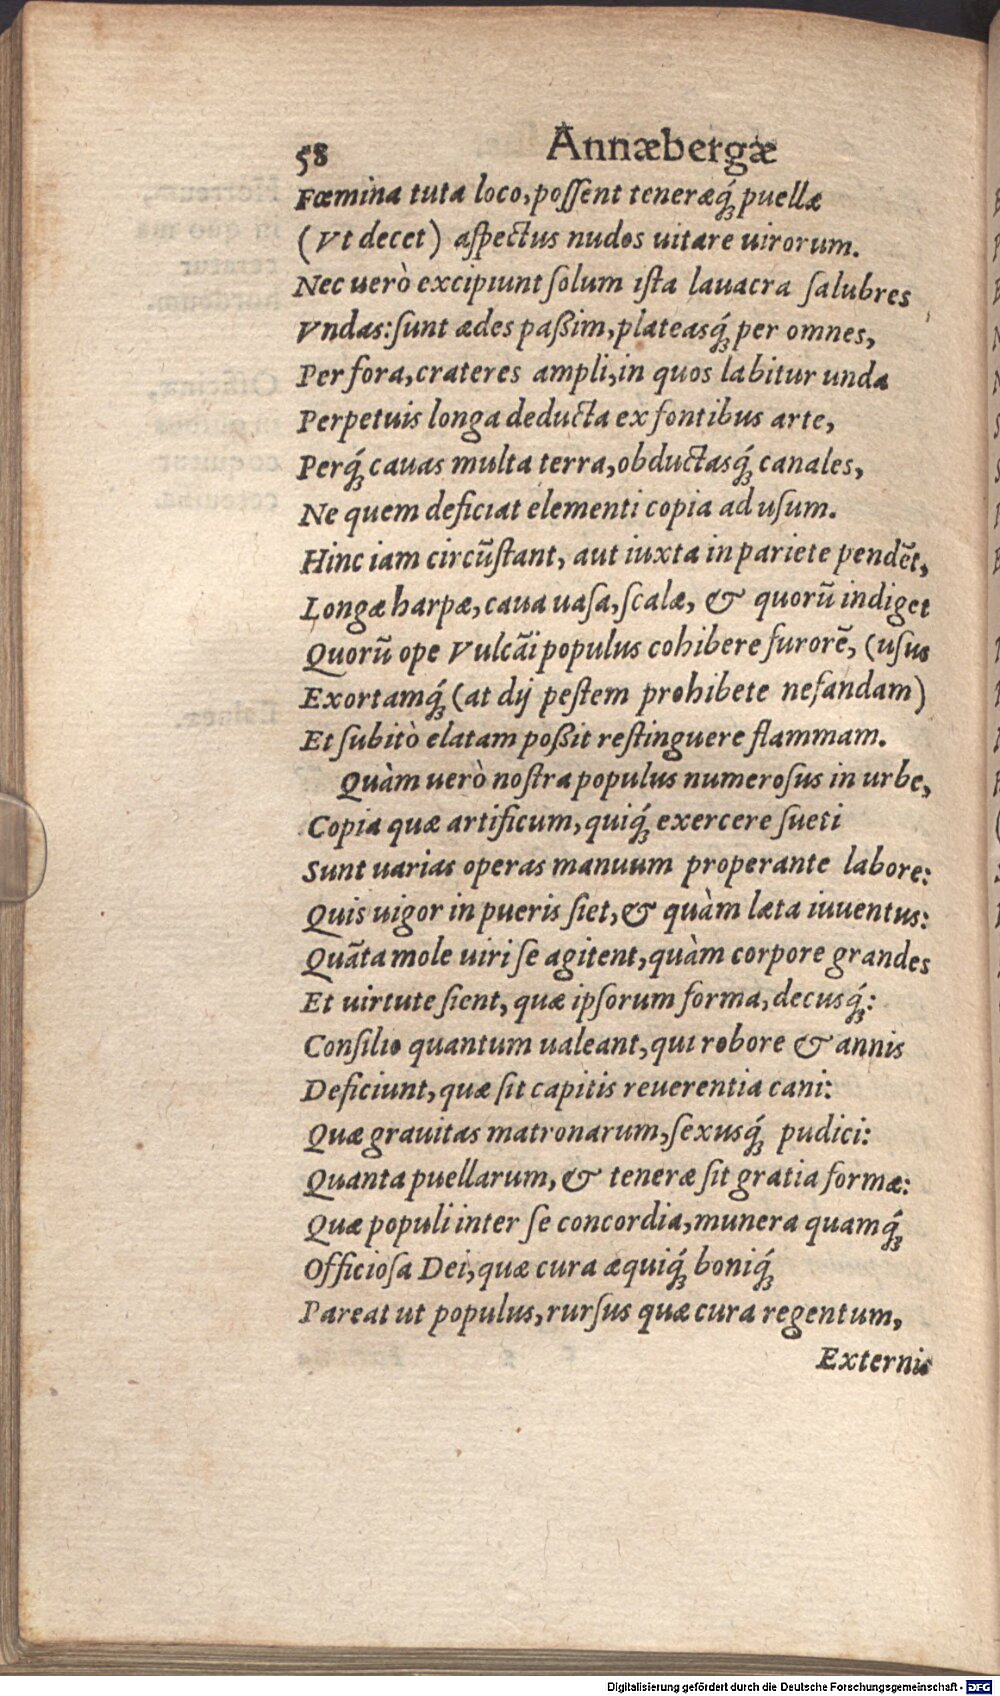 58 Annæbergæ
Fœmina tuta loco, possent teneræq́; puellæ
(Vt decet) aspectus nudos uitare uirorum.
Nec uerò excipiunt solum ista lauacra salubres
Vndas: sunt ædes paßim, plateasq́; per omnes,
Per fora, crateres ampli, in quos labitur unda
Perpetuis longa deducta ex fontibus arte,
Perq́; cauas multa terra, obductasq́; canales,
Ne quem deficiat elementi copia ad usum.
Hinc iam circũstant, aut iuxta in pariete pendẽt,
Longæ harpæ, caua uasa, scalæ, & quorũ indiget
Quorũ ope Vulcãi populus cohibere furorẽ, (usus
Exortamq́; (at dij pestem prohibete nefandam)
Et subitò elatam poßit restinguere flammam.
Quàm uerò nostra populus numerosus in urbe,
Copia quæ artificum, quiq́; exercere sueti
Sunt uarias operas manuum properante labore:
Quis uigor in pueris siet, & quàm læta iuuentus:
Quãta mole uiri se agitent, quàm corpore grandes
Et uirtute sient, quæ ipsorum forma, decusq́;:
Consilio quantum ualeant, qui robore & annis
Deficiunt, quæ sit capitis reuerentia cani:
Quæ grauitas matronarum, sexusq́; pudici:
Quanta puellarum, & teneræ sit gratia formæ:
Quæ populi inter se concordia, munera quamq́;
Officiosa Dei, quæ cura æquiq́; boniq́;
Pareat ut populus, rursus quæ cura regentum,
Externis
Digitalisierung gefördert durch die Deutsche Forschungsgemeinschaft - DFG